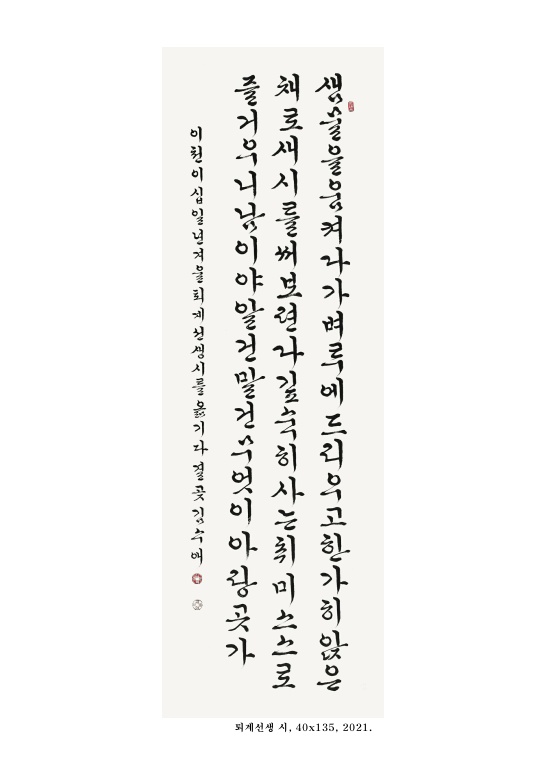 샘물을움켜다가벼루에드리우고한가히앉은
채로새시를써보련다깊숙히사는취미스스로
즐거우니남이야알건말건무엇이아랑곳가
이천이십일년겨울퇴계선생시를옮기다결곳김수애
퇴계선생 시, 40x135, 2021.